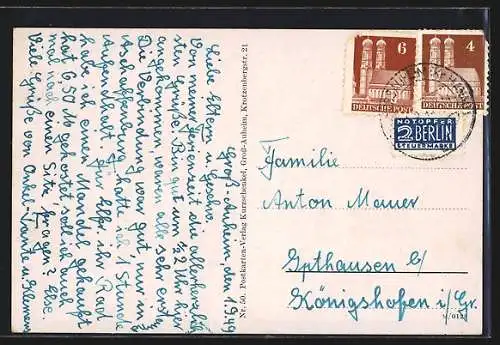 Groß-Auheim, den 1.9.49
Liebe Eltern u. Geschw.
Von meiner Ferienzeit die allerherzlich-
sten Grüße! Bin gut um ½2 Uhr hier
angekommen, waren alle sehr
Die Verbindung war gut, nur in
Aschaffenburg hatte ich 1 Stunde
Aufenthalt. Für Elfr. ihr Rad
habe ich einen Mandel gekauft
hat 6,50 M gekostet soll ich auch
mal nach einen Sitz fragen? Else.
Viele Grüße von Onkel, Tante u. Klemens
Nr. 50. Postkarten-Verlag Kurzschenkel, Groß-Auheim, Krotzenbergstr. 21
6
DEUTSCHE POST
4
DEUTSCHE POST
NOTOPFER
2 BERLIN
STEUERMARKE
Familie
Anton Mauer
Ipthausen b/
Königshofen i/Gr.